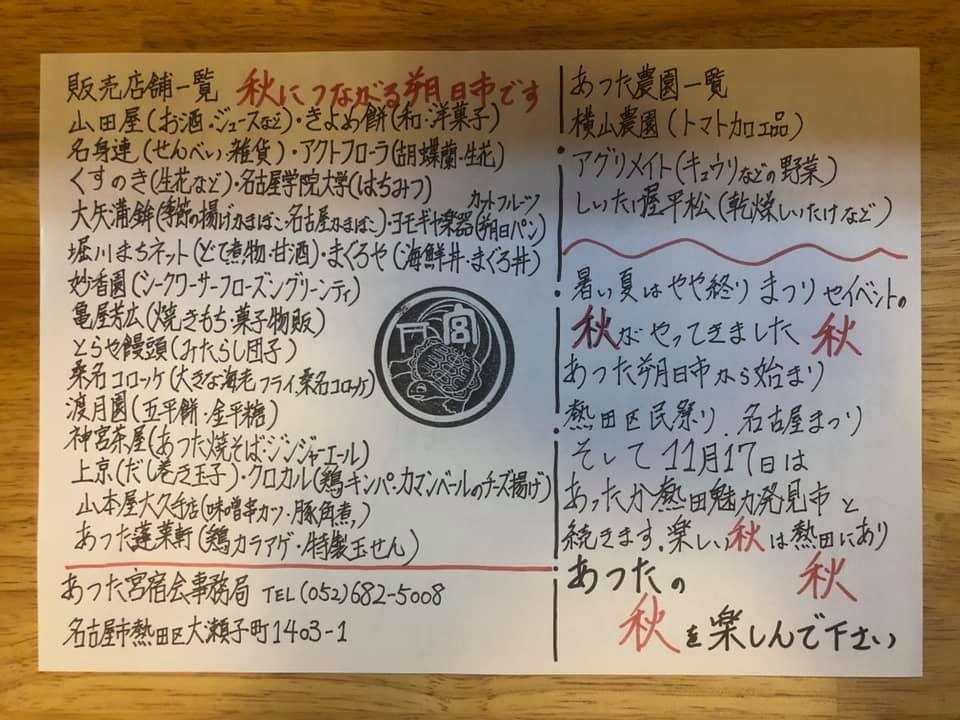 販売店舗一覧 秋につながる朔日市です
山田屋(お酒・ジュースなど)・きよめ餅(和・洋菓子)
名身連(せんべい、雑貨)・アクトフローラ(胡蝶蘭・生花)
くすのき(生花など)・名古屋学院大学(はちみつ)
カットフルーツ
大矢蒲鉾(季節の揚げかまぼこ・名古屋かまぼこ)・ヨモギヤ楽器(朔日パン)
堀川まちネット(どて煮物・甘酒)・まぐろや(海鮮丼・まぐろ丼)
妙香園(シークワーサーフローズングリーンティ)
亀屋芳広(焼きもち・菓子物販)
とらや饅頭(みたらし団子)
桑名コロッケ(大きな海老フライ桑名コロッケ)
渡月園(五平餅・金平糖)
神宮茶屋(あつた焼そば・ジンジャーエール)
上京(だし巻き玉子)・クロカル(鶏キンパ・カマンベールのチーズ揚げ)
山本屋大久手店(味噌串カツ・豚角煮)
あつた蓬莱軒(鶏カラアゲ・特製玉せん)
宮
あつた宮宿会事務局 TEL(052)682-5008
名古屋市熱田区大瀬子町1403-1
あつた農園一覧
横山農園(トマト加工品)
アグリメイト(キュウリなどの野菜)
しいたけ屋平松(乾燥しいたけなど)
暑い夏はやや終り まつりやイベントの
秋がやってきました 秋
あつた朔日市から始まり
熱田区民祭り、名古屋まつり
そして11月17日は
あったか熱田魅力発見市と
続きます。楽しい秋は熱田にあり
あつたの 秋
秋を楽しんで下さい